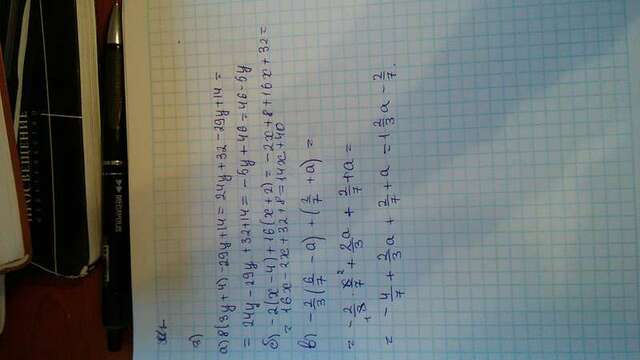 ПРОСВЕЩЕНИЕ
ИЗДАТЕЛЬСТВО
MEGAPOLIS
3)
а) 8(3y+4)-29y+14= 24y+32-29y+14=
= 24y-29y+32+14= -5y+46=46-5y
б) -2(x-4)+16(x+2)= -2x+8+16x+32=
= 16x-2x+32+8=14x+40
в) -2/3(6/7 -a) + (2/7 +a) =
= -2/3 · 6/7 ² + 2/3 a + 2/7 + a =
= -4/7 + 2/3 a + 2/7 + a = 1 2/3 a - 2/7.